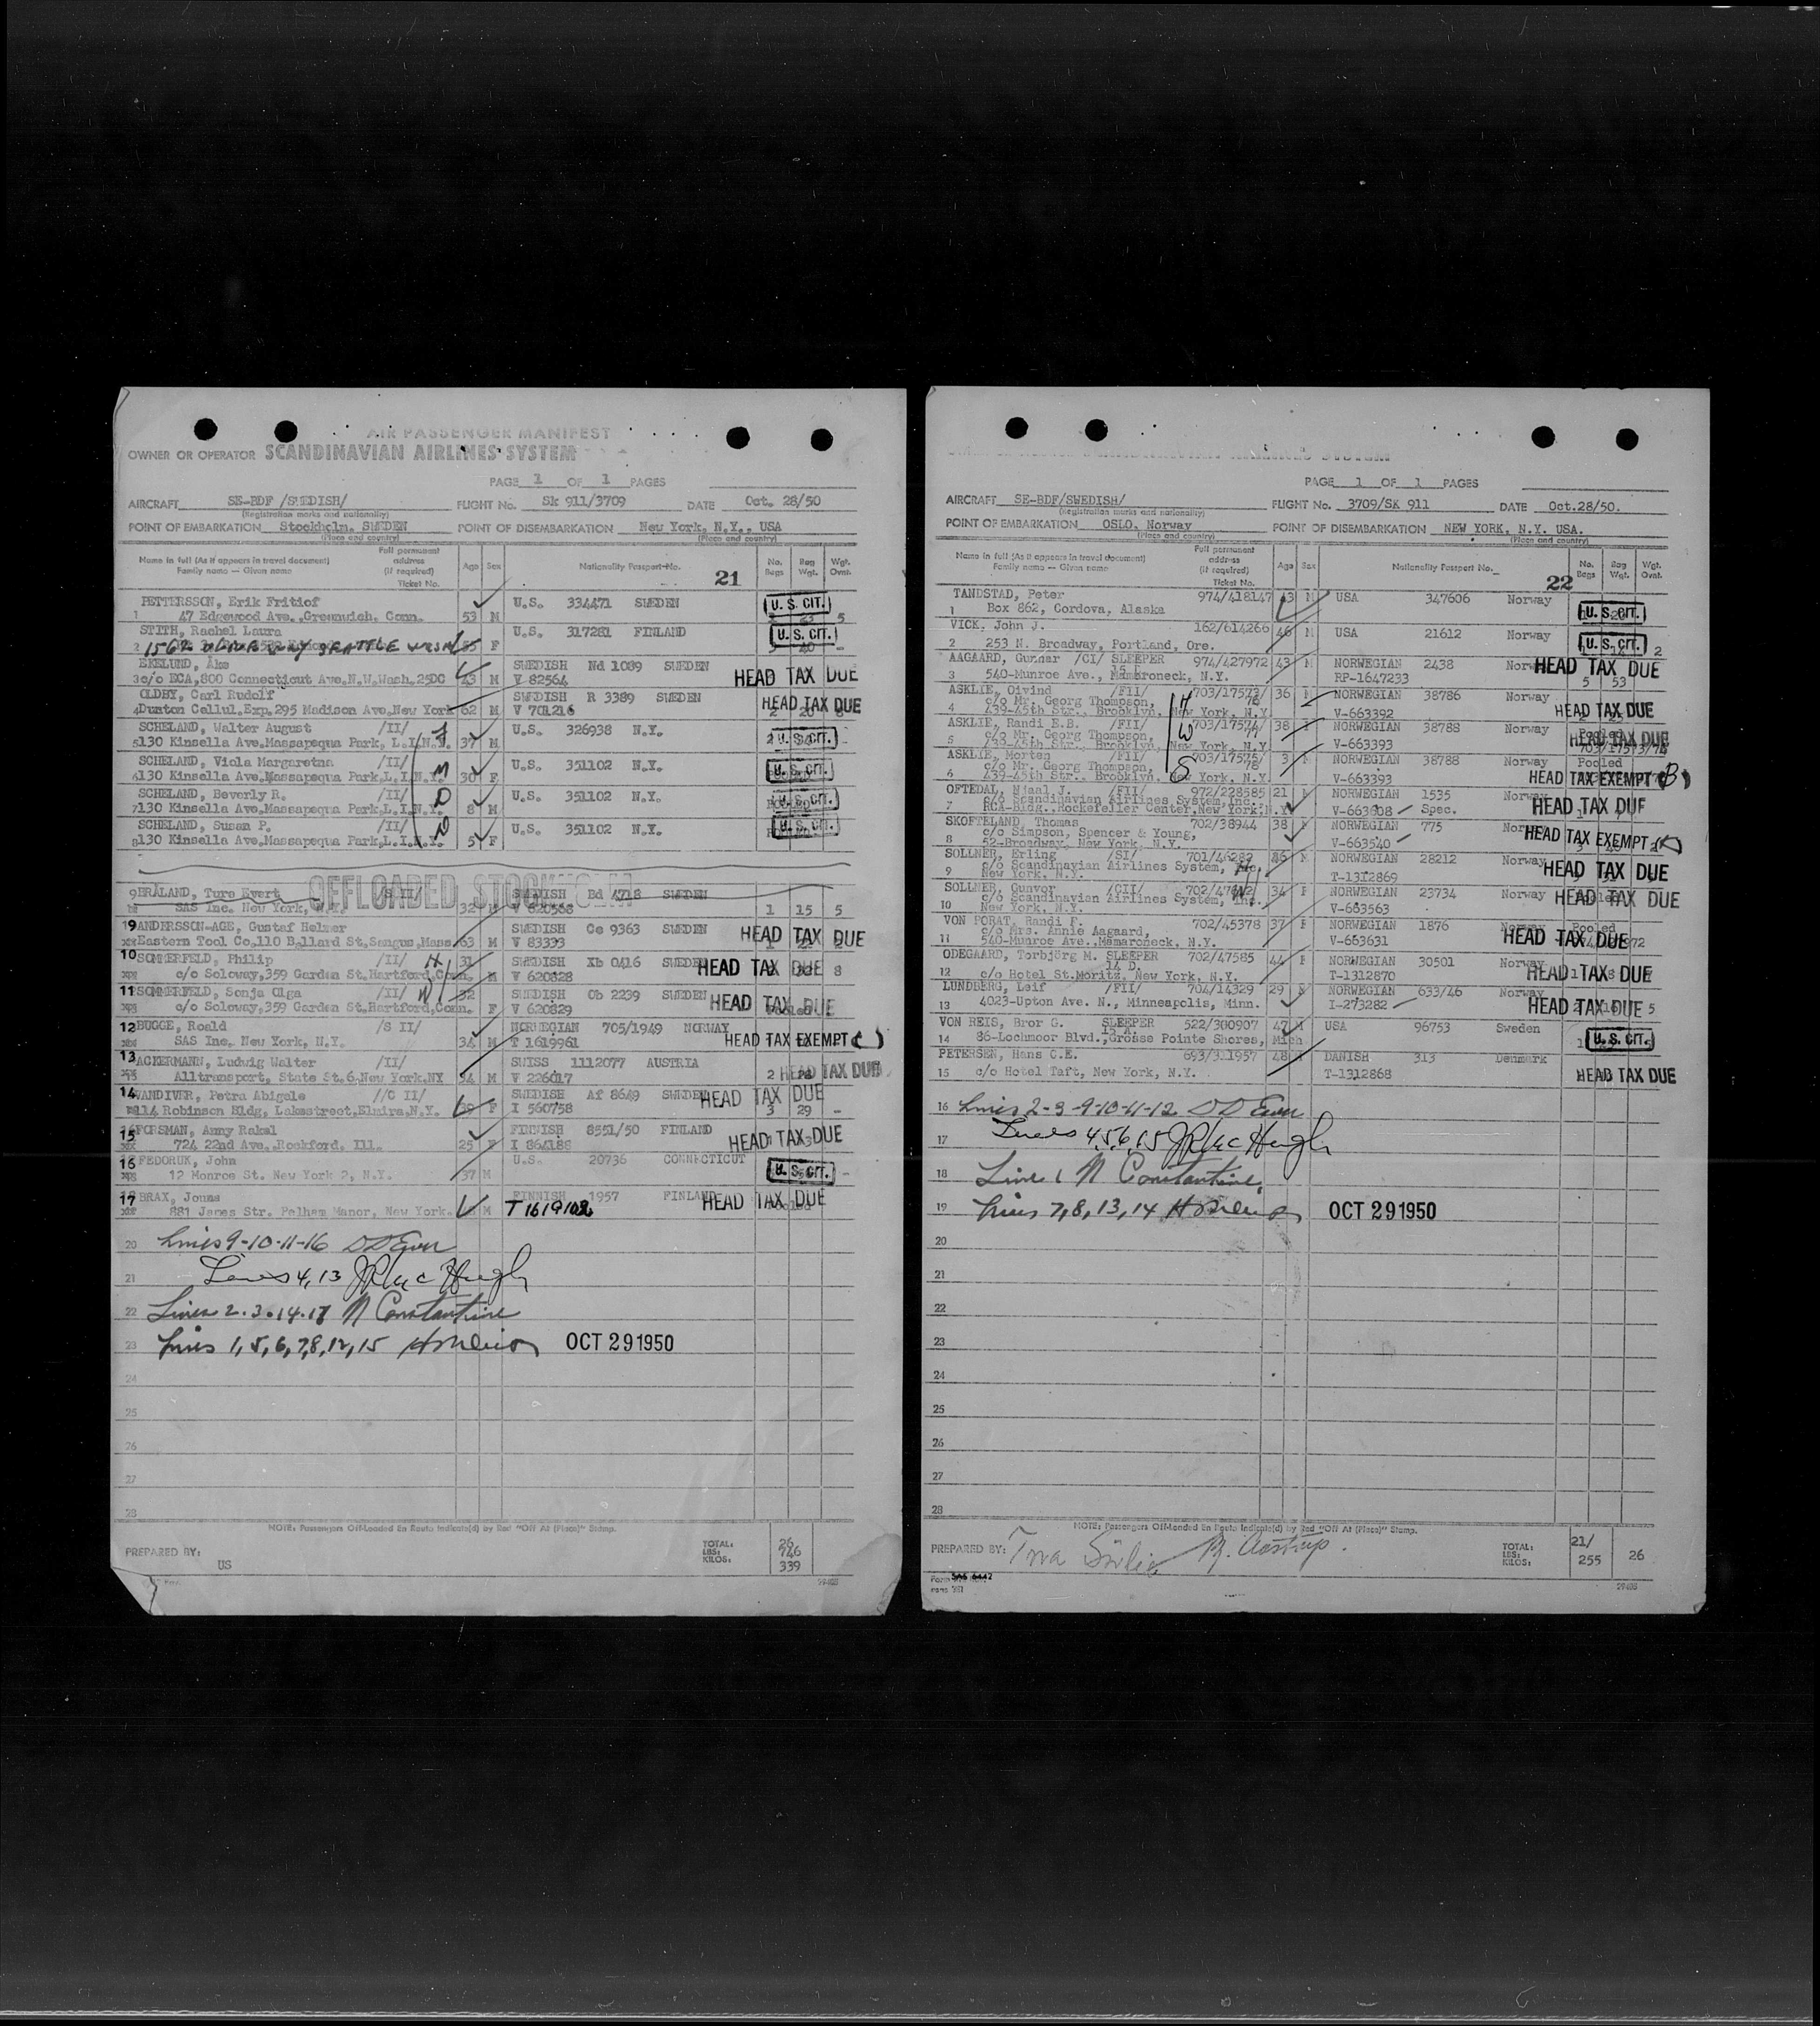 AIR PASSENGER MANIFEST
OWNER OR OPERATOR SCANDINAVIAN AIRLINES SYSTEM
PAGE 1 OF 1 PAGES
AIRCRAFT SE-BDF /SWEDISH/ FLIGHT No. SK 911/3709 DATE Oct. 28/50
(Registration marks and nationality)
POINT OF EMBARKATION Stockholm. SWEDEN POINT OF DISEMBARKATION New York, N.Y., USA
(Place and country) (Place and country)
Name in full (As it appears in travel document) Family name — Given name Full permanent address (if required) Ticket No. Age Sex Nationality Passport No. 21 No. Bags Bag Wgt. Wgt. Ovwt.
PETTERSSON, Erik Fritiof U.S. 334471 SWEDEN U. S. CIT.
1 47 Edgewood Ave. Greenwich. Conn. 53 M 5
STITH, Rachel Laura U.S. 317281 FINLAND U. S. CIT.
2 SEATTLE F
EKELUND, Åke SWEDISH Nd 1089 SWEDEN HEAD TAX DUE
3 c/o ECA, 800 Connecticut Ave. N.W. Wash. 25DC 43 M V 82564
OLDBY, Carl Rudolf SWEDISH R 3389 SWEDEN HEAD TAX DUE
4 Dunton Cellul. Exp. 295 Madison Ave. New York 62 M V 701216
SCHELAND, Walter August /II/ U.S. 326938 N.Y. U. S. CIT.
5 130 Kinsella Ave. Massapequa Park, L.I. N.Y. 37 M
SCHELAND, Viola Margaretna /II/ M U.S. 351102 N.Y. U. S. CIT.
6 130 Kinsella Ave. Massapequa Park, L.I. N.Y. 30 F
SCHELAND, Beverly R. /II/ D U.S. 351102 N.Y. U. S. CIT.
7 130 Kinsella Ave. Massapequa Park, L.I. N.Y. 8 M
SCHELAND, Susan P. /II/ D U.S. 351102 N.Y. U. S. CIT.
8 130 Kinsella Ave. Massapequa Park, L.I. N.Y. 5 F
OFFLOADED STOCKHOLM
9 BRÅLAND, Ture Evert /S II/ SWEDISH Bd 4718 SWEDEN
SAS Inc. New York, N.Y. 32 M V 620568 1 15 5
9 ANDERSSON-AGE, Gustaf Helmer SWEDISH Ce 9363 SWEDEN HEAD TAX DUE
Eastern Tool Co, 110 Ballard St, Saugus, Mass. 63 M V 83393
10 SOMMERFELD, Philip /II/ H 31 SWEDISH Xb 0416 SWEDEN HEAD TAX DUE 8
c/o Soloway, 359 Garden St, Hartford, Conn. M V 620828
11 SOMMERFELD, Sonja Olga /II/ W 32 SWEDISH Ob 2239 SWEDEN HEAD TAX DUE
c/o Soloway, 359 Garden St, Hartford, Conn. F V 620829
12 BUGGE, Roald /S II/ NORWEGIAN 705/1949 NORWAY HEAD TAX EXEMPT ( )
SAS Inc. New York, N.Y. 34 M T 1619961
13 ACKERMANN, Ludwig Walter /II/ SWISS 1112077 AUSTRIA HEAD TAX DUE
Alltransport, State St. 6, New York. NY 54 M V 226017 2
14 VANDIVER, Petra Abigale //C II/ SWEDISH Af 8649 SWEDEN HEAD TAX DUE
114 Robinson Bldg, Lakestreet, Elmira, N.Y. F I 560758 3 29 -
15 FORSMAN, Anny Rakel FINNISH 8551/50 FINLAND HEAD TAX DUE
724 22nd Ave. Rockford. Ill. 25 F I 864188
16 FEDORUK, John U.S. 20736 CONNECTICUT U. S. CIT.
12 Monroe St. New York 2, N.Y. 37 M
17 BRAX, Jouns FINNISH 1957 FINLAND HEAD TAX DUE
881 James Str. Pelham Manor, New York. M T 1619102
20 Lines 9-10-11-16
21 Lines 4, 13 J R McHugh
22 Lines 2. 3. 14. 17 N Constantine
23 Lines 1, 5, 6, 7, 8, 12, 15 OCT 29 1950
24
25
26
27
28
NOTE: Passengers Off-Loaded En Route Indicate(d) by Red "Off At (Place)" Stamp.
PREPARED BY: US TOTAL: 26 LBS: 746 KILOS: 339
29488
PAGE 1 OF 1 PAGES
AIRCRAFT SE-BDF/SWEDISH/ FLIGHT No. 3709/SK 911 DATE Oct.28/50.
(Registration marks and nationality)
POINT OF EMBARKATION OSLO. Norway POINT OF DISEMBARKATION NEW YORK, N.Y. USA.
(Place and country) (Place and country)
Name in full (As it appears in travel document) Family name — Given name Full permanent address (if required) Ticket No. Age Sex Nationality Passport No. 22 No. Bags Bag Wgt. Wgt. Ovwt.
TANDSTAD, Peter 974/418147 43 M USA 347606 Norway U. S. CIT.
1 Box 862, Cordova, Alaska
VICK, John J. 162/614266 46 M USA 21612 Norway U. S. CIT.
2 253 N. Broadway, Portland, Ore. 2
AAGAARD, Gunnar /CI/ SLEEPER 974/427972 43 M NORWEGIAN 2438 Norway HEAD TAX DUE
3 540-Munroe Ave., Mamaroneck, N.Y. RP-1647233 5 53
ASKLIE, Oivind /FII/ H 703/17573/76 36 M NORWEGIAN 38786 Norway HEAD TAX DUE
4 c/o Mr. Georg Thompson, 439-45th Str., Brooklyn, New York, N.Y. V-663392
ASKLIE, Randi E.B. /FII/ W 703/17574/ 38 F NORWEGIAN 38788 Norway Pooled HEAD TAX DUE
5 c/o Mr. Georg Thompson, 439-45th Str., Brooklyn, New York, N.Y. V-663393
ASKLIE, Morten /FII/ S 703/17575/76 3 M NORWEGIAN 38788 Norway Pooled
6 c/o Mr. Georg Thompson, 439-45th Str., Brooklyn, New York, N.Y. V-663393 HEAD TAX EXEMPT (B)
OFTEDAL, Njaal J. /FII/ 972/228585 21 M NORWEGIAN 1535 Norway HEAD TAX DUE
7 c/o Scandinavian Airlines System, Inc., RCA-Bldg. Rockefeller Center, New York, N.Y. V-663608 Spec.
SKOFTELAND, Thomas 702/38944 38 NORWEGIAN 775 Norway HEAD TAX EXEMPT
8 c/o Simpson, Spencer & Young, 52-Broadway, New York, N.Y. V-663540
SOLLNER, Erling /SI/ 701/46282 M NORWEGIAN 28212 Norway HEAD TAX DUE
9 c/o Scandinavian Airlines System, Inc. New York, N.Y. H T-1312869
SOLLNER, Gunvor /CII/ W 34 F NORWEGIAN 23734 Norway HEAD TAX DUE
10 c/o Scandinavian Airlines System, Inc. New York, N.Y. V-663563
VON PORAT, Randi F. 702/45378 37 F NORWEGIAN 1876 Norway Pooled HEAD TAX DUE
11 c/o Mrs. Annie Aagaard, 540-Munroe Ave., Mamaroneck, N.Y. V-663631
ODEGAARD, Torbjörg M. SLEEPER 14 D. 702/47585 44 F NORWEGIAN 30501 Norway HEAD TAX DUE
12 c/o Hotel St.Moritz, New York, N.Y. T-1312870
LUNDBERG, Leif /FII/ 704/14329 29 M NORWEGIAN 633/46 Norway HEAD TAX DUE 5
13 4023-Upton Ave. N., Minneapolis, Minn. I-273282
VON REIS, Bror G. SLEEPER 13 A. 522/300907 47 M USA 96753 Sweden U. S. CIT.
14 86-Lochmoor Blvd., Grosse Pointe Shores, Mich
PETERSEN, Hans C.E. 693/311957 48 DANISH 313 Denmark HEAD TAX DUE
15 c/o Hotel Taft, New York, N.Y. T-1312868
16 Lines 2-3-9-10-11-12
17 Lines 4,5,6,15 J R McHugh
18 Line 1 N Constantine
19 Lines 7, 8, 13, 14 OCT 29 1950
20
21
22
23
24
25
26
27
28
NOTE: Passengers Off-Loaded En Route Indicate(d) by Red "Off At (Place)" Stamp.
PREPARED BY: TOTAL: LBS: KILOS: 21/ 255 26
Form SAS 6442
29488